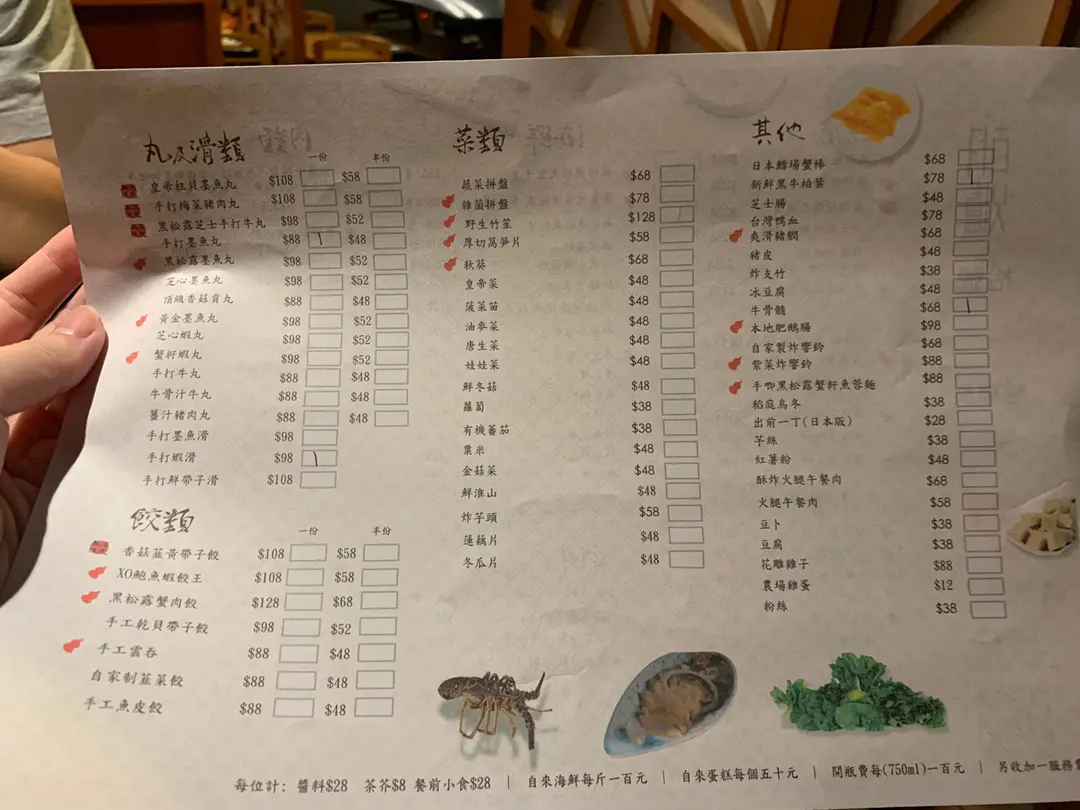 丸及滑類 一份 半份
皇帝柱貝墨魚丸 $108 $58
手打梅菜豬肉丸 $108 $58
黑松露芝士手打牛丸 $98 $52
手打墨魚丸 $88 $48
黑松露墨魚丸 $98 $52
芝心墨魚丸 $98 $52
頂級香菇貢丸 $88 $48
黃金墨魚丸 $98 $52
芝心蝦丸 $98 $52
蟹籽蝦丸 $98 $52
手打牛丸 $88 $48
牛骨汁牛丸 $88 $48
薑汁豬肉丸 $88 $48
手打墨魚滑 $98
手打蝦滑 $98
手打鮮帶子滑 $108
餃類 一份 半份
香菇韮黃帶子餃 $108 $58
XO鮑魚蝦餃王 $108 $58
黑松露蟹肉餃 $128 $68
手工乾貝帶子餃 $98 $52
手工雲吞 $88 $48
自家制韮菜餃 $88 $48
手工魚皮餃 $88 $48
菜類
蔬菜拼盤 $68
雜菌拼盤 $78
野生竹笙 $128
厚切萵笋片 $58
秋葵 $68
皇帝菜 $48
菠菜苗 $48
油麥菜 $48
唐生菜 $48
娃娃菜 $48
鮮冬菇 $48
蘿蔔 $38
有機蕃茄 $38
粟米 $48
金菇菜 $48
鮮淮山 $48
炸芋頭 $58
蓮藕片 $48
冬瓜片 $48
其他
日本鱈場蟹棒 $68
新鮮黑牛柏葉 $78
芝士腸 $48
台灣鴨血 $78
爽滑豬膶 $68
豬皮 $48
炸支竹 $38
冰豆腐 $48
牛骨髓 $68
本地肥鵝腸 $98
自家製炸響鈴 $68
紫菜炸響鈴 $88
手唧黑松露蟹籽魚蓉麵 $88
稻庭烏冬 $38
出前一丁(日本版) $28
芋絲 $38
紅薯粉 $48
酥炸火腿午餐肉 $68
火腿午餐肉 $58
豆卜 $38
豆腐 $38
花雕雞子 $88
農場雞蛋 $12
粉絲 $38
每位計: 醬料$28 茶芥$8 餐前小食$28 | 自來海鮮每斤一百元 | 自來蛋糕每個五十元 | 開瓶費每(750ml)一百元 | 另收加一服務